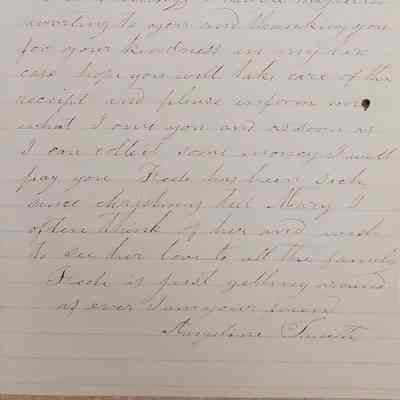 writing to you and thanking you
for your kindness in my tax
case hope you will take care of the
receipt and please inform me
what I owe you and as soon as
I can collect some money I will
pay you Fred has been sick
since christmas tell Mary I
often think of her and wish
to see her love to all the family
Fred is just getting around
as ever I am your friend
Smith